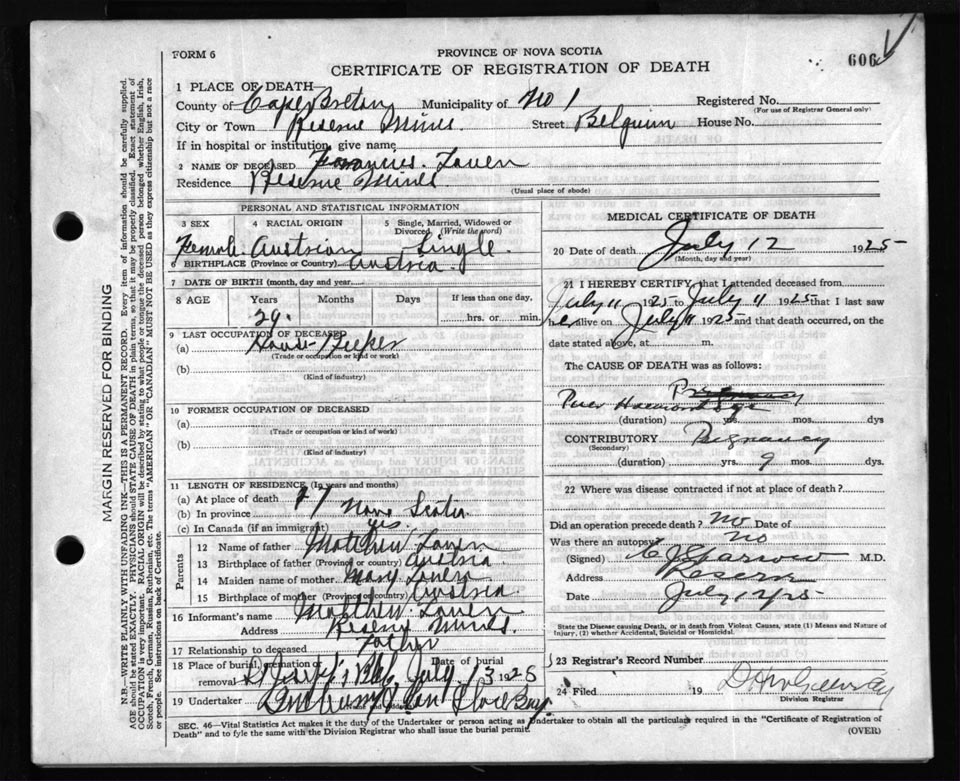 FORM 6
PROVINCE OF NOVA SCOTIA
606
CERTIFICATE OF REGISTRATION OF DEATH
1 PLACE OF DEATH
County of Cape Breton Municipality of No 1 Registered No.
(For use of Registrar General only)
City or Town Reserve Mines Street Belguim House No.
If in hospital or institution, give name
2 NAME OF DECEASED Lanen
Residence Reserve Mines
(Usual place of abode)
PERSONAL AND STATISTICAL INFORMATION
3 SEX 4 RACIAL ORIGIN 5 Single, Married, Widowed or Divorced (Write the word)
Female. Austrian Single.
6 BIRTHPLACE (Province or Country) Austria.
7 DATE OF BIRTH (month, day and year)
8 AGE Years Months Days If less than one day,
29. hrs. or min.
9 LAST OCCUPATION OF DECEASED
(a) House-Keeper
(Trade or occupation or kind or work)
(b)
(Kind of industry)
10 FORMER OCCUPATION OF DECEASED
(a)
(Trade or occupation or kind of work)
(b)
(Kind of industry)
11 LENGTH OF RESIDENCE (In years and months)
(a) At place of death 27
(b) In province Nova Scotia
(c) In Canada (if an immigrant) yes.
Parents
12 Name of father Matthew Lanen
13 Birthplace of father (Province or country) Austria.
14 Maiden name of mother Mary Lanen
15 Birthplace of mother (Province or country) Austria
16 Informant's name Matthew Lanen
Address Reserve Mines.
17 Relationship to deceased Father
18 Place of burial, cremation or removal St Joseph's Date of burial July 13 1925
19 Undertaker Glace Bay.
MEDICAL CERTIFICATE OF DEATH
20 Date of death July 12 1925
(Month, day and year)
21 I HEREBY CERTIFY, that I attended deceased from
July 11 1925 to July 11 1925 that I last saw
her alive on July 11 1925 and that death occurred, on the
date stated above, at m.
The CAUSE OF DEATH was as follows:
Pregnancy
(duration) yrs. mos. dys
CONTRIBUTORY Pregnancy
(Secondary)
(duration) yrs. 9 mos. dys.
22 Where was disease contracted if not at place of death?
Did an operation precede death? no Date of
Was there an autopsy? no
(Signed) M.D.
Address Reserve
Date July 12/25
State the Disease causing Death, or in death from Violent Causes, state (1) Means and Nature of
Injury, (2) whether Accidental, Suicidal or Homicidal.
23 Registrar's Record Number
24 Filed 19
Division Registrar
SEC. 46—Vital Statistics Act makes it the duty of the Undertaker or person acting as Undertaker to obtain all the particulars required in the "Certificate of Registration of
Death" and to fyle the same with the Division Registrar who shall issue the burial permit.
(OVER)
MARGIN RESERVED FOR BINDING
N.B.—WRITE PLAINLY WITH UNFADING INK—THIS IS A PERMANENT RECORD. Every item of information should be carefully supplied.
AGE should be stated EXACTLY. PHYSICIANS should STATE CAUSE OF DEATH in plain terms, so that it may be properly classified. Exact statement of
OCCUPATION is very important. RACIAL ORIGIN will be described by stating to what people or tongue the deceased person belonged whether English, Irish,
Scotch, French, German, Russian, Ruthenian, etc. The terms "AMERICAN" or "CANADIAN" MUST NOT BE USED as they express citizenship but not a race
or people. See instructions on back of Certificate.